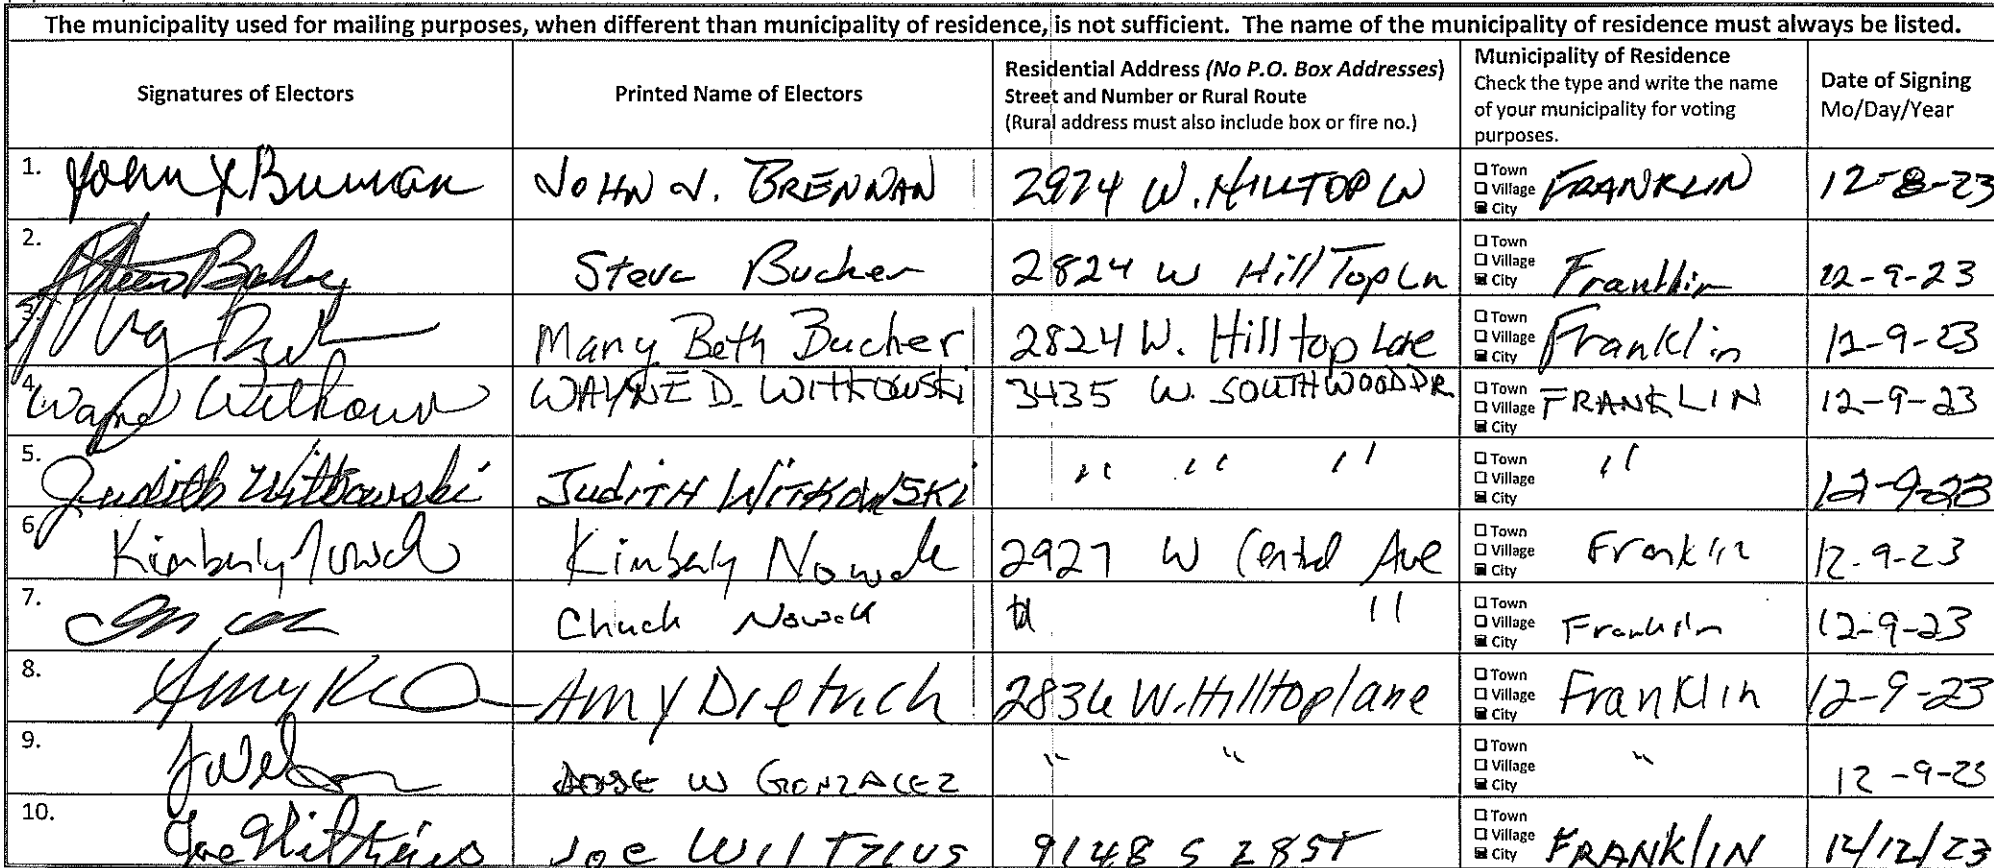 The municipality used for mailing purposes, when different than municipality of residence, is not sufficient. The name of the municipality of residence must always be listed.
Signatures of Electors
Printed Name of Electors
Residential Address (No P.O. Box Addresses)
Street and Number or Rural Route
(Rural address must also include box or fire no.)
Municipality of Residence
Check the type and write the name
of your municipality for voting
purposes.
Date of Signing
Mo/Day/Year
1. John JOHN J. BRENNAN 2974 W. HILLTOP LN Town Village City FRANKLIN 12-8-23
2. Steve Bucher 2824 W HillTop Ln Town Village City Franklin 12-9-23
3. Mary Beth Bucher 2824 W. Hilltop Lane Town Village City Franklin 12-9-23
4. WAYNE D. WITKOWSKI 3435 W. SOUTHWOOD DR. Town Village City FRANKLIN 12-9-23
5. Judith Witkowski JUDITH WITKOWSKI " " " Town Village City " 12-9-23
6. Kimberly Nowak Kimberly Nowak 2927 W Central Ave Town Village City Franklin 12-9-23
7. Chuck Nowak " Town Village City Franklin 12-9-23
8. Amy Amy Dietrich 2836 W. Hilltop lane Town Village City Franklin 12-9-23
9. JOSE W GONZALEZ " " Town Village City " 12-9-23
10. Joe JOE WILTZIUS 9148 S 28 ST Town Village City FRANKLIN 12/12/23